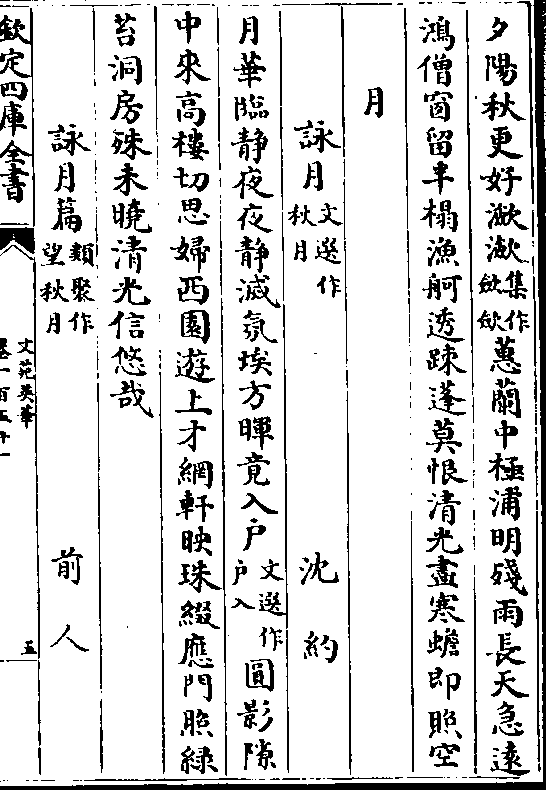 夕陽秋更好瀲瀲集作斂斂蕙蘭中極浦明殘雨長天急遠
鴻僧窗留半榻漁舸透疎蓬莫恨清光盡寒蟾即照空
月
詠月文選作秋月 沈約
月華臨静夜夜静滅氛埃方暉竟入户文選作户入圓影隙
中來高樓切思婦西園遊上才網軒映珠綴應門照緑
苔洞房殊未曉清光信悠哉
詠月篇類聚作望秋月 前人
欽定四庫全書
文苑英華
卷一百五十一
五